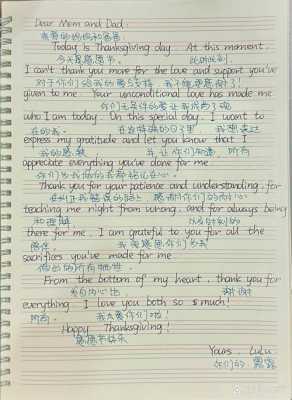 Dear Mom and Dad:
亲爱的妈妈和爸爸
Today is Thanksgiving day. At this moment,
今天是感恩节. 此时此刻,
I can't thank you more for the love and support you've
对于你们给我的爱与支持 我不能更感谢了!
given to me. Your unconditional love has made me
你们无条件的爱让我成为了现
who I am today. On this special day, I want to
在的我. 在这特殊的日子里 我想表达
express my gratitude and let you know that I
我的感激 并让你们知道, 所有
appreciate everything you've done for me.
你们为我做的我都铭记在心.
Thank you for your patience and understanding, for
teaching me right from wrong, and for always being
there for me. I am grateful to you for all the
陪伴. 我很感恩你们为我
sacrifices you've made for me.
做出的所有牺牲.
From the bottom of my heart, thank you for
发自内心地 谢谢
everything. I love you both so much!
所有. 我太爱你们啦!
Happy Thanksgiving!
感恩节快乐
Yours, LuLu
你们的 露露